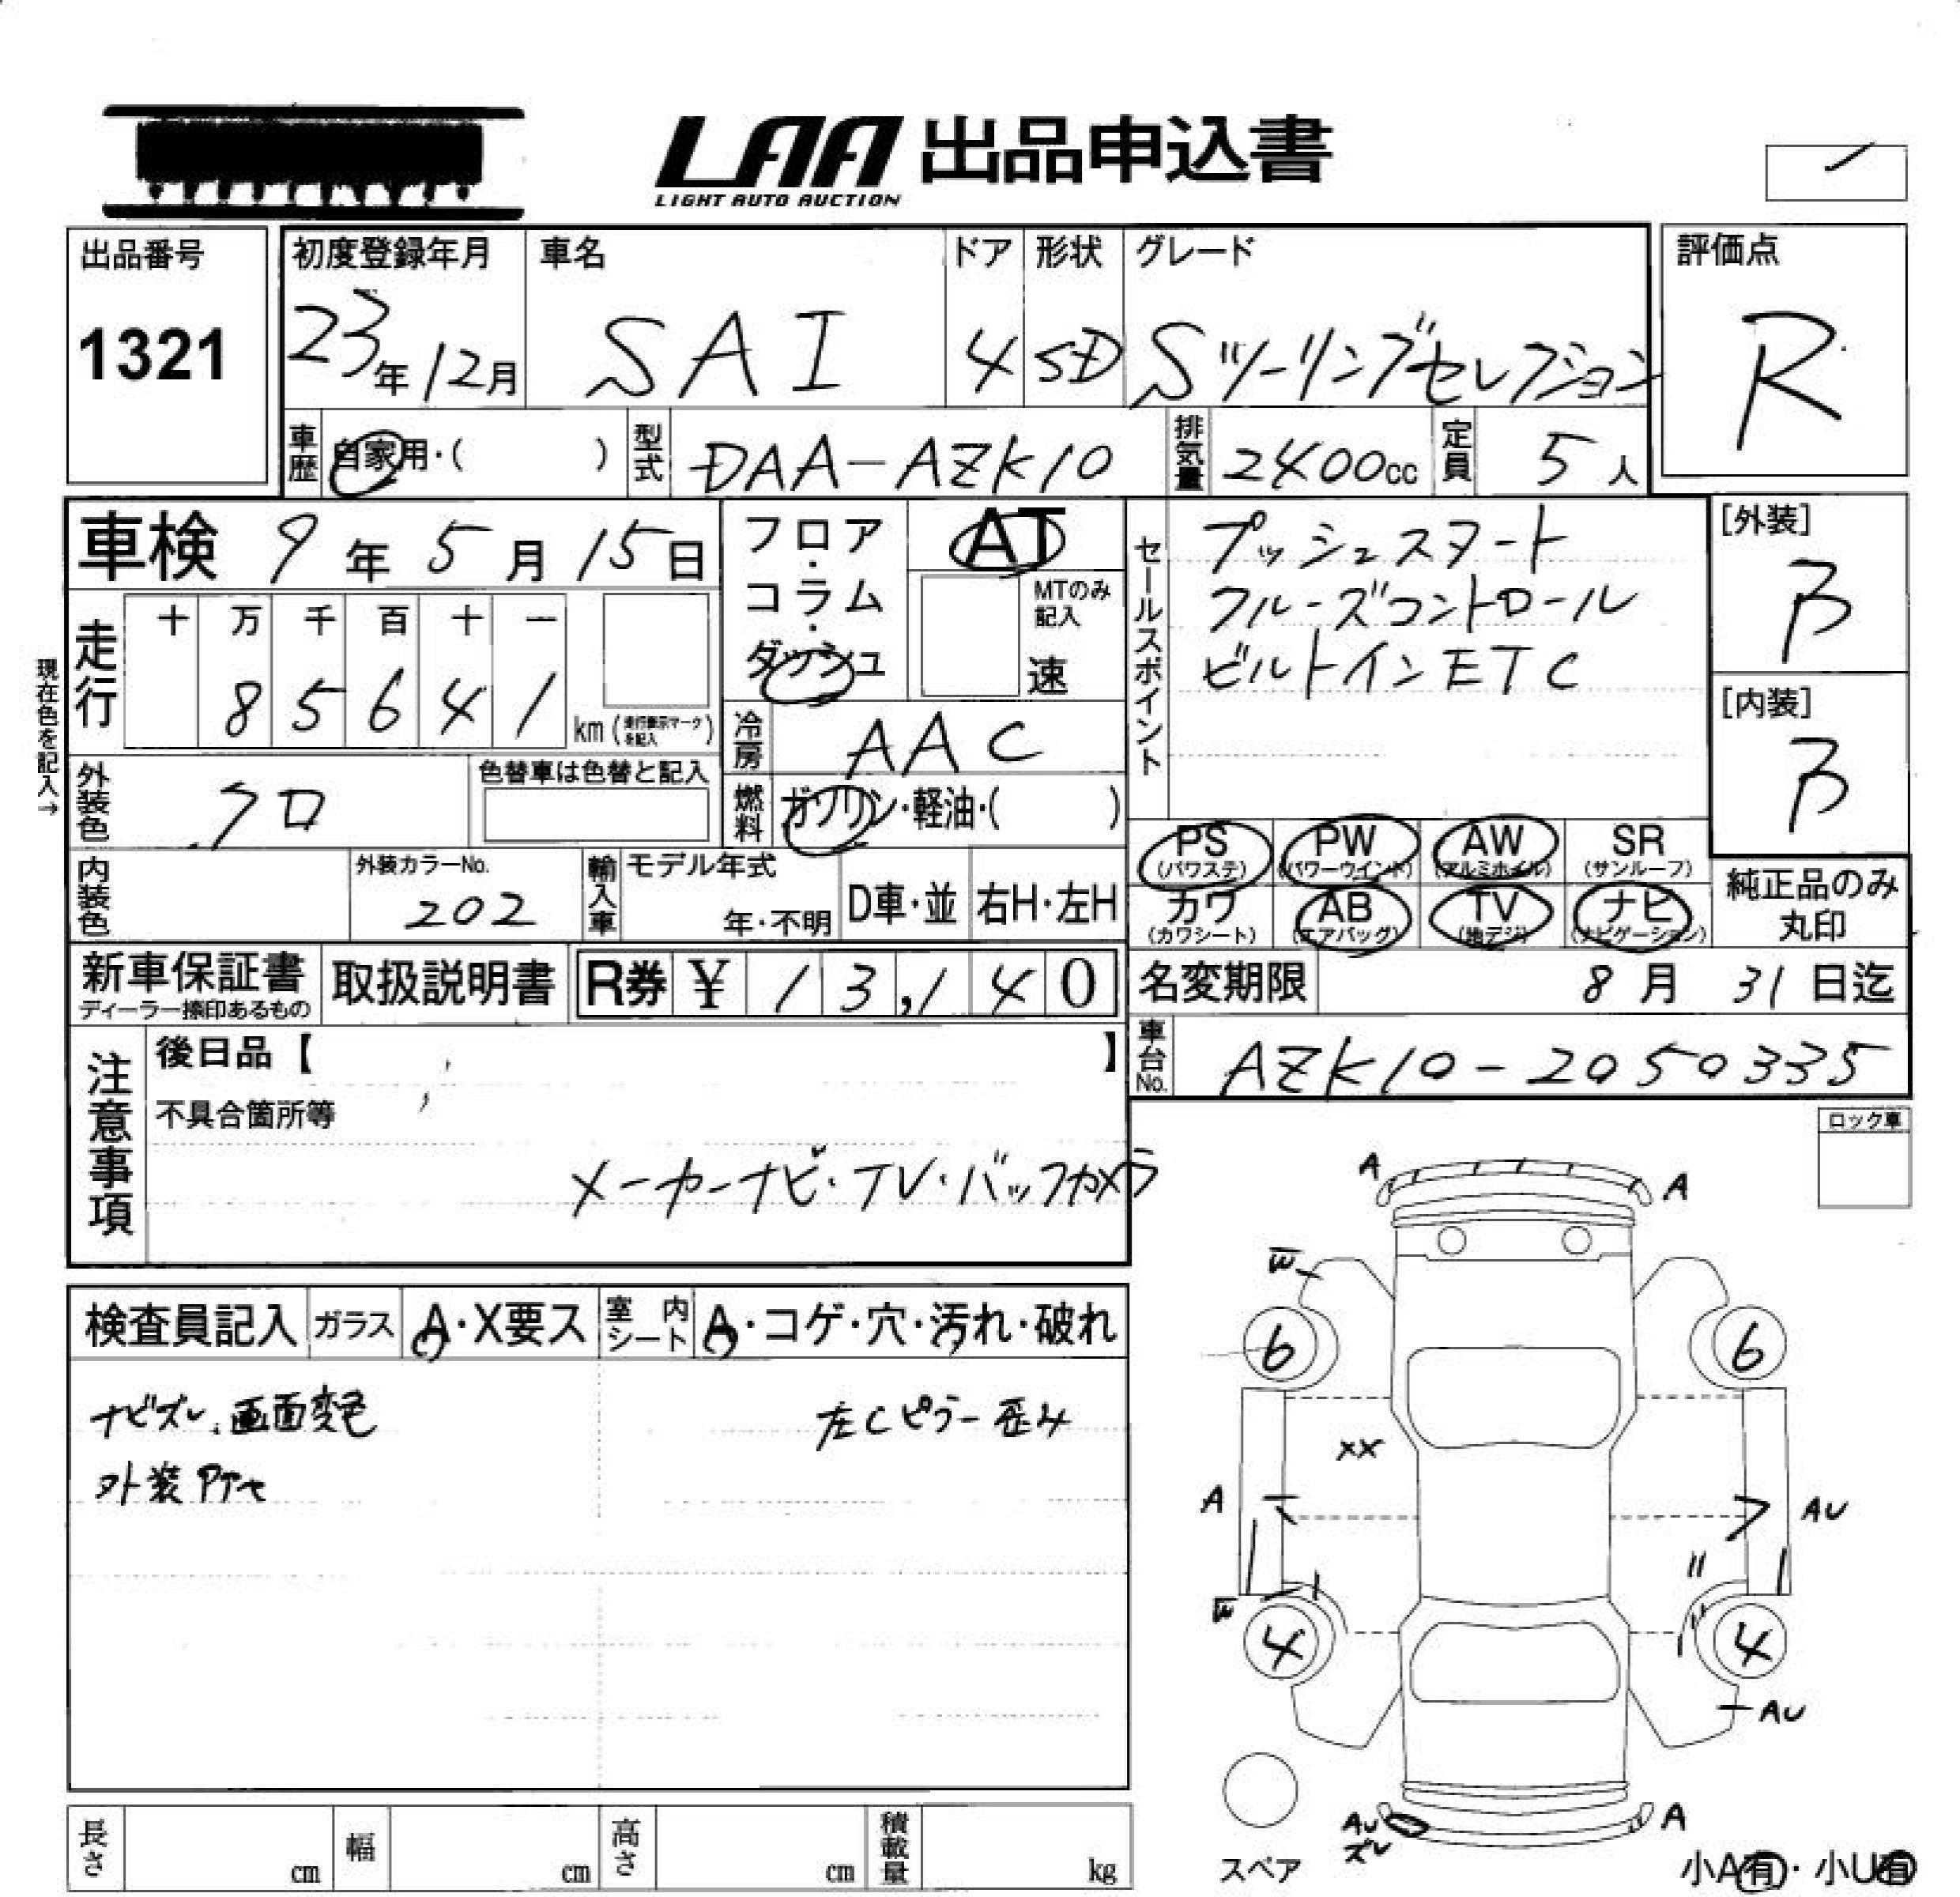 LAA 出品申込書
LIGHT AUTO AUCTION
出品番号
1321
初度登録年月
23年12月
車名
SAI
ドア
4
形状
SD
グレード
Sツーリングセレクション
評価点
R
車歴
自家用・( )
型式
DAA-AZK10
排気量
2400cc
定員
5人
車検 9年5月15日
フロア・コラム・ダッシュ
AT
MTのみ記入
速
セールスポイント
プッシュスタート
クルーズコントロール
ビルトインETC
[外装]
B
[内装]
B
現在色を記入→
走行
十 万 千 百 十 一
8 5 6 4 1 km (走行表示マークを記入)
冷房
AAC
外装色
クロ
色替車は色替と記入
燃料
ガソリン・軽油・( )
PS (パワステ)
PW (パワーウインド)
AW (アルミホイル)
SR (サンルーフ)
カワ (カワシート)
AB (エアバッグ)
TV (地デジ)
ナビ (ナビゲーション)
純正品のみ丸印
内装色
外装カラーNo.
202
輸入車
モデル年式
年・不明
D車・並
右H・左H
新車保証書
ディーラー捺印あるもの
取扱説明書
R券 ¥ 13,140
名変期限 8月31日迄
車台No.
AZK10-2050335
注意事項
後日品【 】
不具合箇所等
メーカーナビ・TV・バックカメラ
ロック車
検査員記入
ガラス
A・X要ス
室内シート
A・コゲ・穴・汚れ・破れ
ナビズレ、画面変色
左Cピラー歪み
外装
A
A
W
6
6
XX
A
AU
W
4
4
AU
AU
ズレ
A
スペア
小A有・小U有
長さ cm
幅 cm
高さ cm
積載量 kg